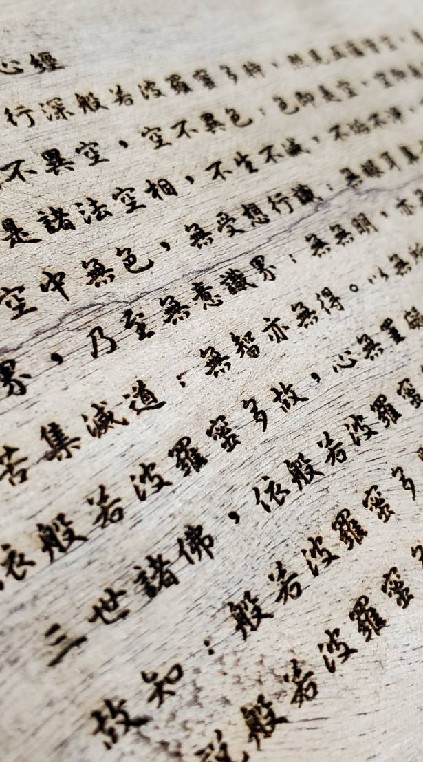 心經
行深般若波羅蜜多時，照見五蘊皆空，
不異空，空不異色；色即是空，空即
是諸法空相，不生不滅，不垢不淨，
空中無色，無受想行識；無眼耳鼻
界，乃至無意識界；無無明，亦
苦集滅道；無智亦無得。以無所
依般若波羅蜜多故，心無罣礙
三世諸佛，依般若波羅蜜
故知：般若波羅蜜多
說般若波羅蜜多